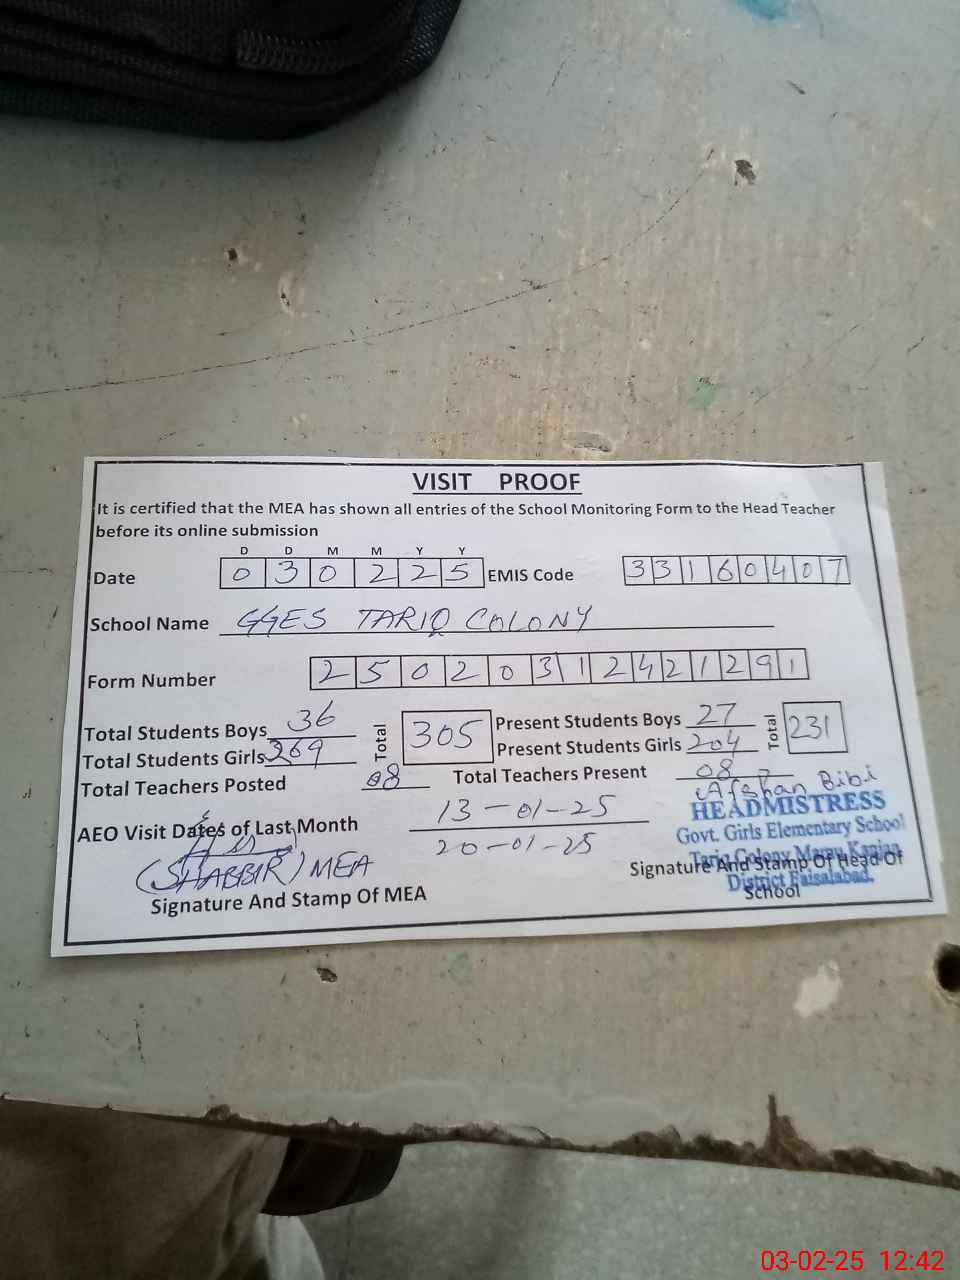 VISIT PROOF
It is certified that the MEA has shown all entries of the School Monitoring Form to the Head Teacher
before its online submission
D D M M Y Y
Date 0 3 0 2 2 5 EMIS Code 3 3 1 6 0 4 0 7
School Name GGES TARIQ COLONY
Form Number 2 5 0 2 0 3 1 2 4 2 1 2 9 1
Total Students Boys 36 Total 305 Present Students Boys 27 Total 231
Total Students Girls 269 Present Students Girls 204
Total Teachers Posted 08 Total Teachers Present 08
Afshan Bibi
AEO Visit Dates of Last Month 13-01-25
20-01-25
HEADMISTRESS
Govt. Girls Elementary School
Tariq Colony Mamu Kanjan
District Faisalabad.
(SHABBIR) MEA
Signature And Stamp Of MEA
Signature And Stamp Of Head Of
School
03-02-25 12:42